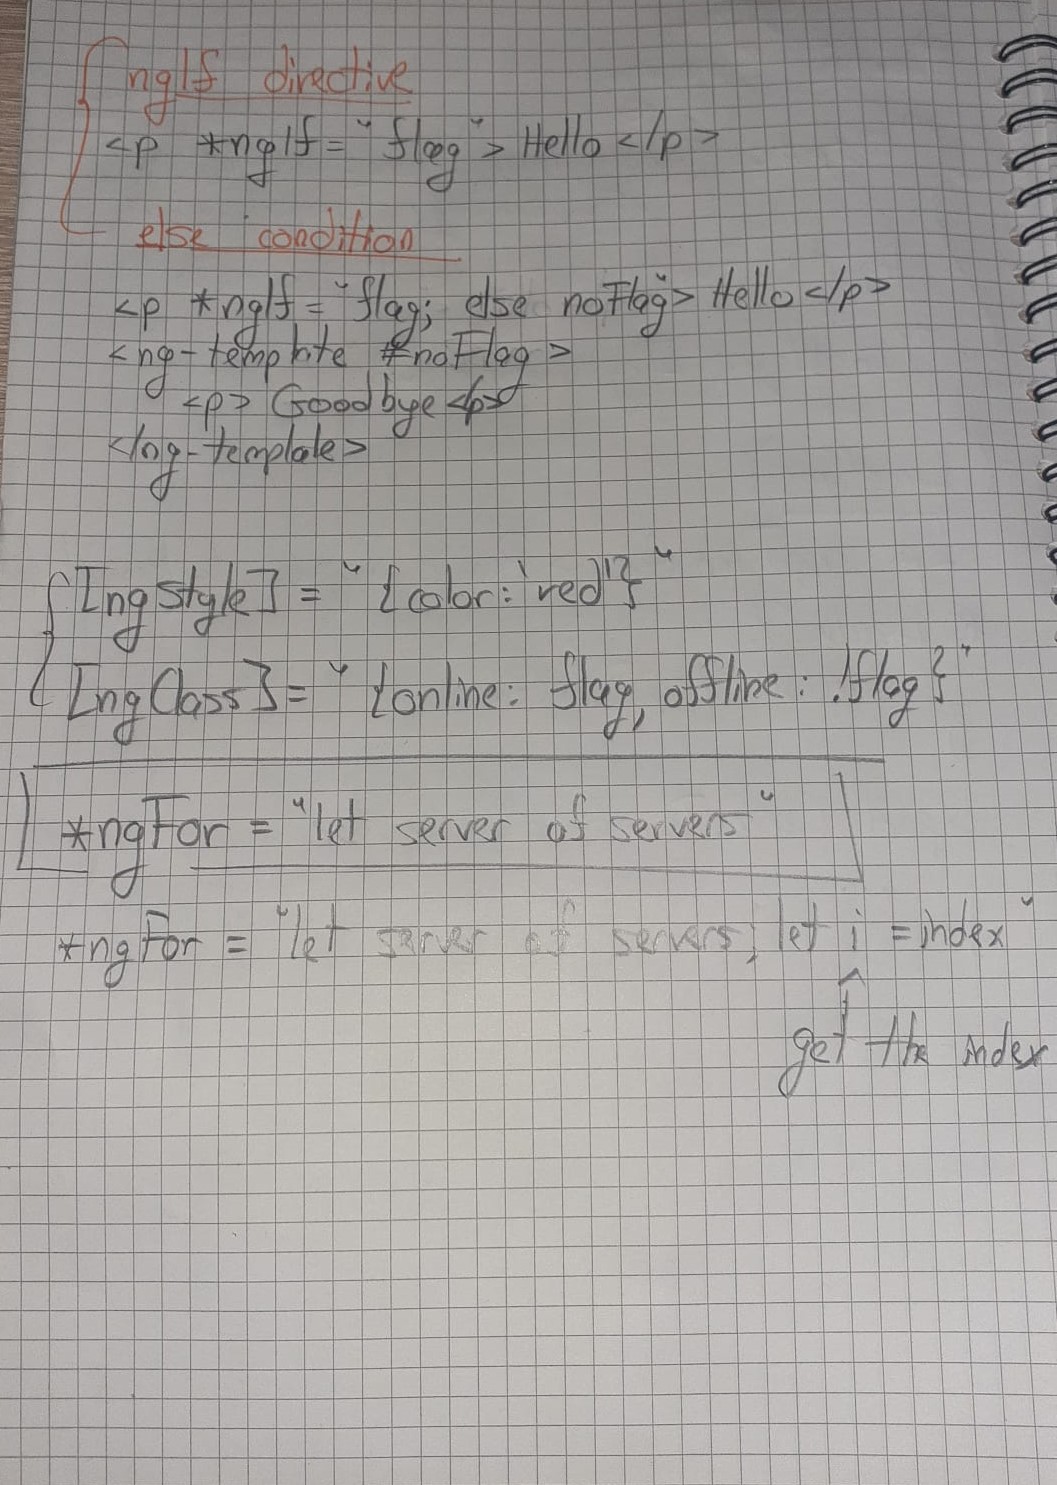 ngIf directive
<p *ngIf = "flag" > Hello </p>
else condition
<p *ngIf = "flag; else noFlag"> Hello </p>
<ng-template #noFlag>
<p> Goodbye <p>
</ng-template>
[ngStyle] = "{color: 'red'}"
[ngClass] = "{online: flag, offline: !flag}"
*ngFor = "let server of servers"
*ngFor = "let server of servers; let i = index"
get the index